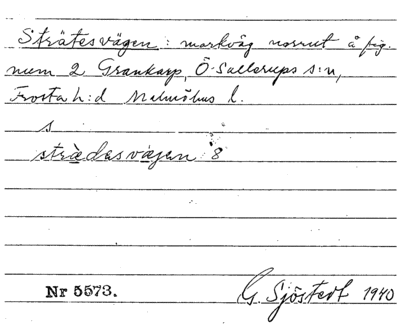 Strätesvägen: markväg norrut å fig.
num 2 Grankarp, Ö. Sallerups s:n,
Frosta h:d Malmöhus l.
s
strädesvägen 8
Nr 5573. G. Sjöstedt 1940